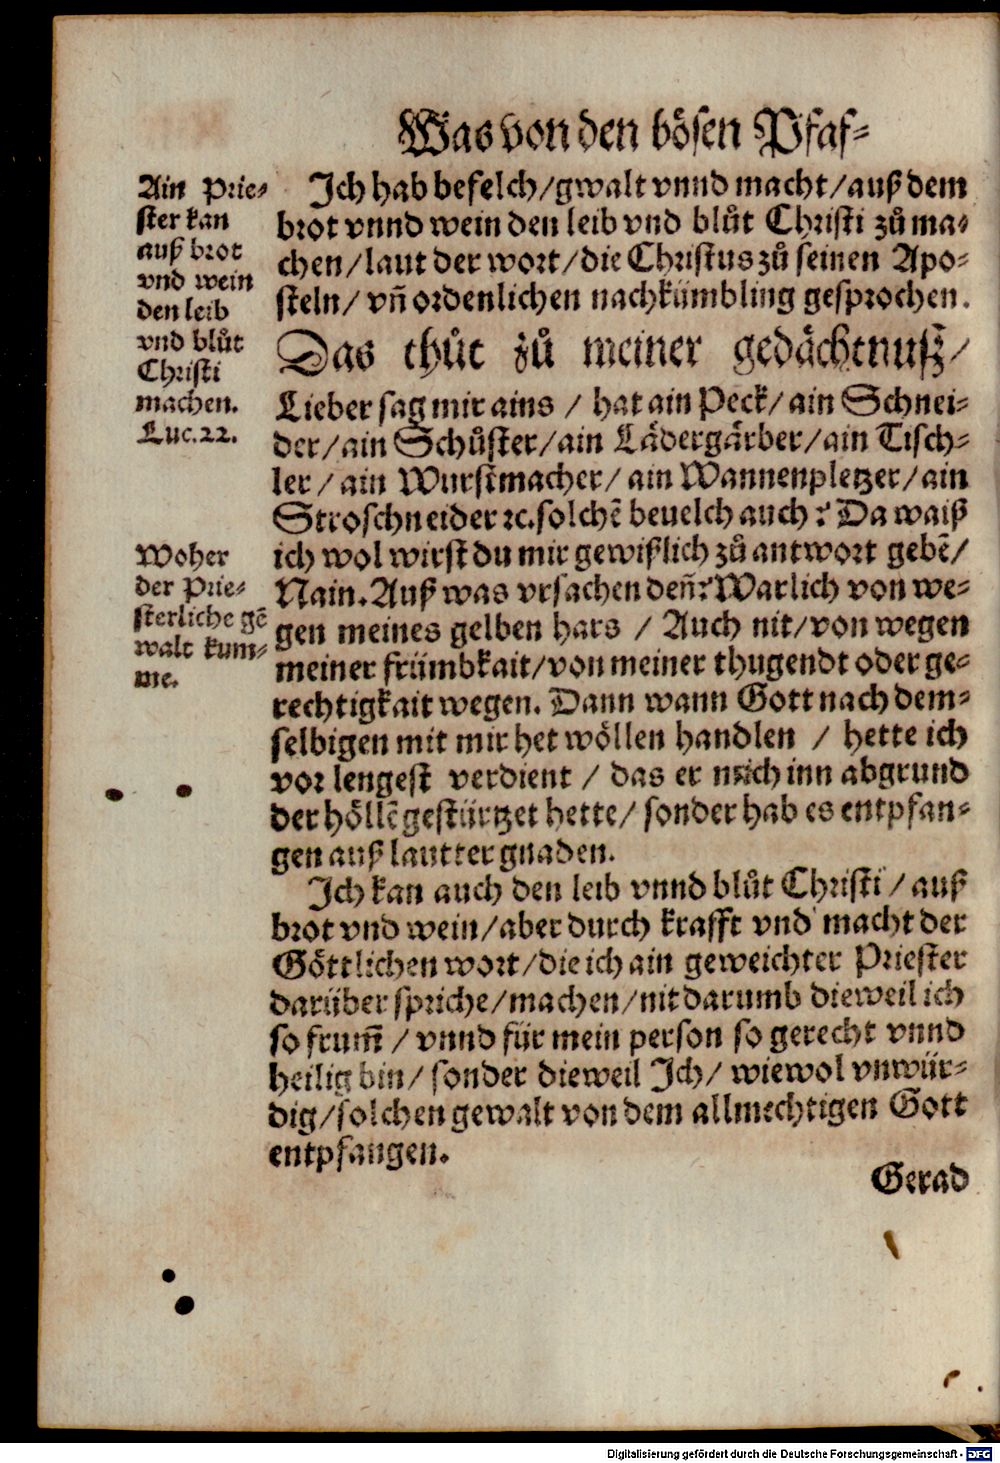 Was von den bösen Pfaf-
Ain Prie-
ster kan
auß brot
vnd wein
den leib
vnd blůt
Christi
machen.
Luc.22.
Ich hab befelch/gwalt vnnd macht/auß dem
brot vnnd wein den leib vnd blůt Christi zů ma-
chen/laut der wort/die Christus zů seinen Apo-
steln/ vñ ordenlichen nachkümbling gesprochen.
Das thůt zů meiner gedächtnuß/
Lieber sag mir ains / hat ain Peck/ain Schnei-
der/ain Schůster/ain Lädergärber/ain Tisch-
ler/ain Wurstmacher/ain Wannenpletzer/ain
Stroschneider ꝛc.solchē beuelch auch? Da waiß
Woher
der Prie-
sterliche gē
walt kum-
me.
ich wol wirst du mir gewißlich zů antwort gebē/
Nain.Auß was vrsachen deñ? Warlich von we-
gen meines gelben hars / Auch nit/von wegen
meiner frümbkait/von meiner thugendt oder ge-
rechtigkait wegen. Dann wann Gott nach dem-
selbigen mit mir het wöllen handlen / hette ich
vor lengest verdient / das er mich inn abgrund
der höllē gestürtzet hette/ sonder hab es entpfan-
gen auß lautter gnaden.
Ich kan auch den leib vnnd blůt Christi / auß
brot vnd wein/aber durch krafft vnd macht der
Göttlichen wort/die ich ain geweichter Priester
darüber spriche/machen/nit darumb dieweil ich
so frum̄ / vnnd für mein person so gerecht vnnd
heilig bin/ sonder dieweil Ich/ wiewol vnwür-
dig/solchen gewalt von dem allmechtigen Gott
entpfangen.
Gerad
Digitalisierung gefördert durch die Deutsche Forschungsgemeinschaft - DFG